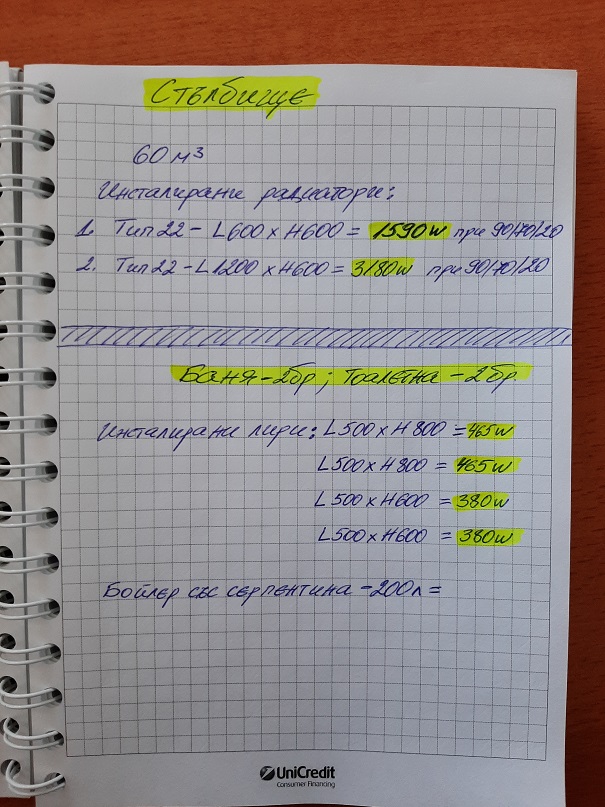 Стълбище
60 м³
Инсталирани радиатори:
1. Тип 22 - L600 x H600 = 1590w при 90/70/20
2. Тип 22 - L1200 x H600 = 3180w при 90/70/20
Баня - 2бр; Тоалетна - 2бр.
Инсталирани лири: L500 x H800 = 465w
L500 x H800 = 465w
L500 x H600 = 380w
L500 x H600 = 380w
Бойлер със серпентина - 200л =
UniCredit
Consumer Financing